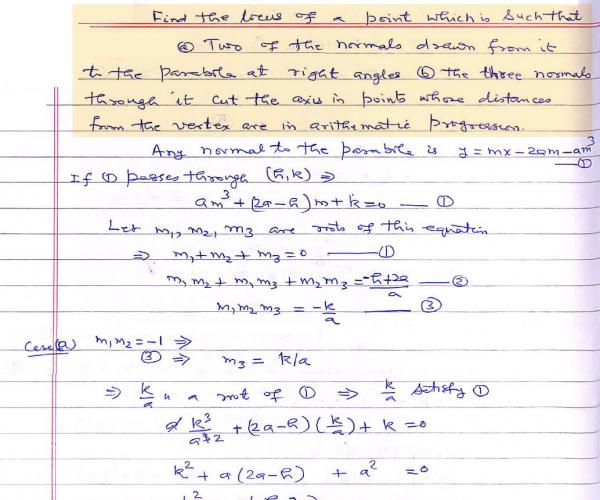 Find the locus of a point which is such that
(a) Two of the normals drawn from it
to the parabola at right angles (b) the three normals
through it cut the axis in points whose distances
from the vertex are in arithematic progression.
Any normal to the parabola is y = mx - 2am - am³
—①
If ① passes through (h, k) ⇒
am³ + (2a - h) m + k = 0 — ①
Let m₁, m₂, m₃ are roots of this equation
⇒ m₁ + m₂ + m₃ = 0 —— ①
m₁ m₂ + m₁ m₃ + m₂ m₃ = (-h + 2a)/a — ②
m₁ m₂ m₃ = -k/a —— ③
Case (a) m₁ m₂ = -1 ⇒
③ ⇒ m₃ = k/a
⇒ k/a is a root of ① ⇒ k/a satisfy ①
k³/a² + (2a - h) (k/a) + k = 0
k² + a (2a - h) + a² = 0